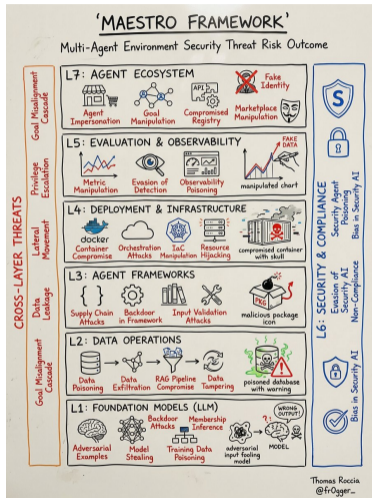 'MAESTRO FRAMEWORK'
Multi-Agent Environment Security Threat Risk Outcome
CROSS-LAYER THREATS
Goal Misalignment
Cascade
Privilege
Escalation
Lateral
Movement
Data
Leakage
Goal Misalignment
Cascade
L7: AGENT ECOSYSTEM
Agent
Impersonation
Goal
Manipulation
API
Compromised
Registry
Fake
Identity
Marketplace
Manipulation
L5: EVALUATION & OBSERVABILITY
Metric
Manipulation
Evasion of
Detection
Observability
Poisoning
FAKE
DATA
manipulated chart
L4: DEPLOYMENT & INFRASTRUCTURE
docker
Container
Compromise
Orchestration
Attacks
IaC
Manipulation
Resource
Hijacking
compromised container
with skull
L3: AGENT FRAMEWORKS
{ }
Supply Chain
Attacks
Backdoor
in Framework
Input Validation
Attacks
PKG
malicious package
icon
L2: DATA OPERATIONS
Data
Poisoning
Data
Exfiltration
RAG Pipeline
Compromise
Data
Tampering
poisoned database
with warning
L1: FOUNDATION MODELS (LLM)
Adversarial
Examples
Model
Stealing
Backdoor
Attacks
Training Data
Poisoning
Membership
Inference
adversarial
input fooling
model
?!
WRONG
OUTPUT!
MODEL
L6: SECURITY & COMPLIANCE
S
Security Agent
Poisoning
Bias in Security AI
Evasion of
Security AI
Non-Compliance
Bias in Security AI
Thomas Roccia
@fr0gger_